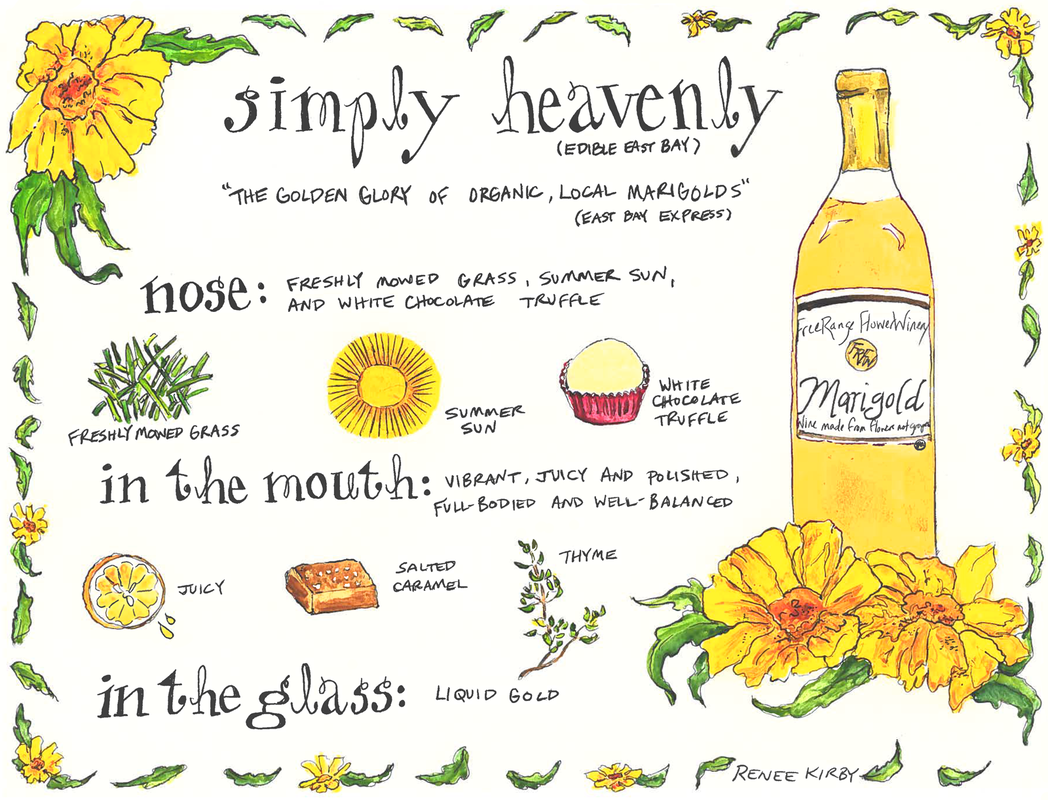 simply heavenly
(EDIBLE EAST BAY)
"THE GOLDEN GLORY OF ORGANIC, LOCAL MARIGOLDS"
(EAST BAY EXPRESS)
nose: FRESHLY MOWED GRASS, SUMMER SUN,
AND WHITE CHOCOLATE TRUFFLE
FRESHLY MOWED GRASS
SUMMER
SUN
WHITE
CHOCOLATE
TRUFFLE
FreeRange FlowerWinery
FRFW
Marigold
Wine made from flowers not grapes
in the mouth: VIBRANT, JUICY AND POLISHED,
FULL-BODIED AND WELL-BALANCED
JUICY
SALTED
CARAMEL
THYME
in the glass: LIQUID GOLD
RENEE KIRBY